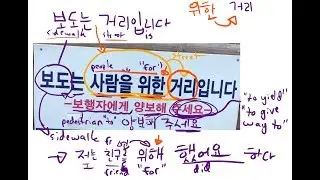 보도는 거리입니다
위한 거리
sidewalk street is
people "for" street
보도는 사람을 위한 거리입니다
-보행자에게 양보해 주세요-
"to yield"
"to give way to"
pedestrian "to" 양보해 주세요
sidewalk
→ 저는 친구를 위해 했어요 하다
I friend "for" did